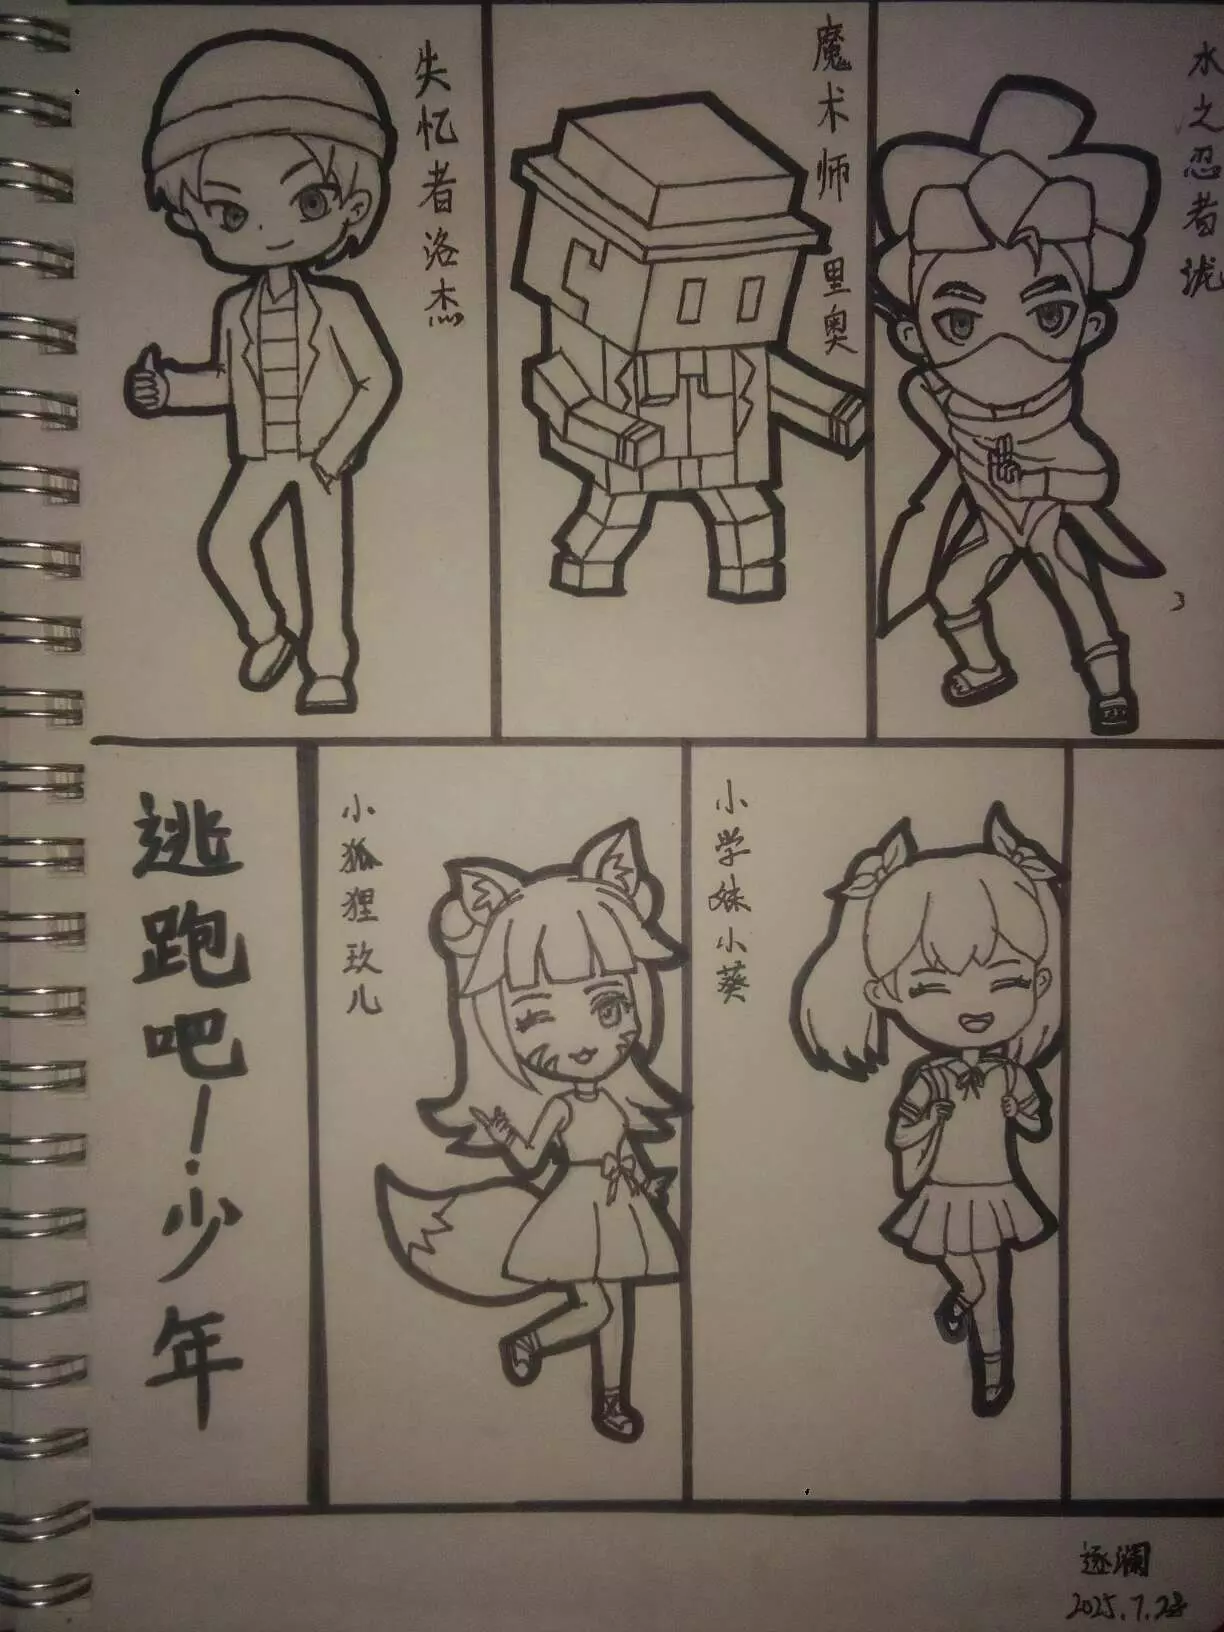 失忆者洛杰
魔术师里奥
水之忍者泷
逃跑吧！少年
小狐狸玖儿
小学妹小葵
逐澜